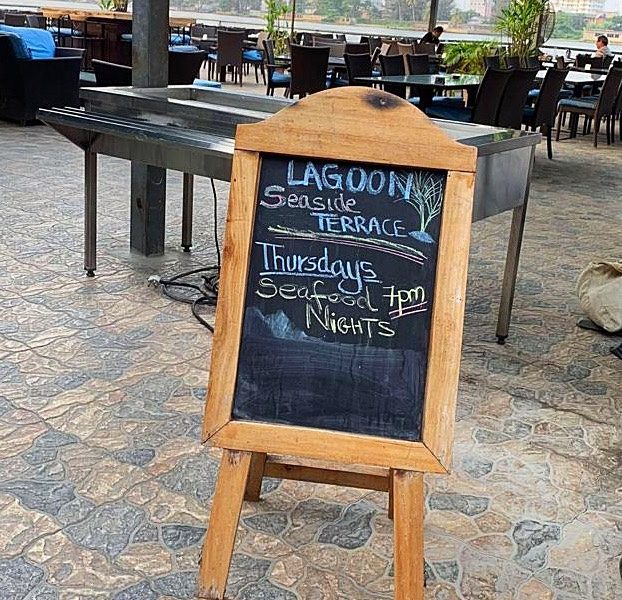 LAGOON
Seaside
TERRACE
Thursdays
Seafood 7pm
NiGHTS